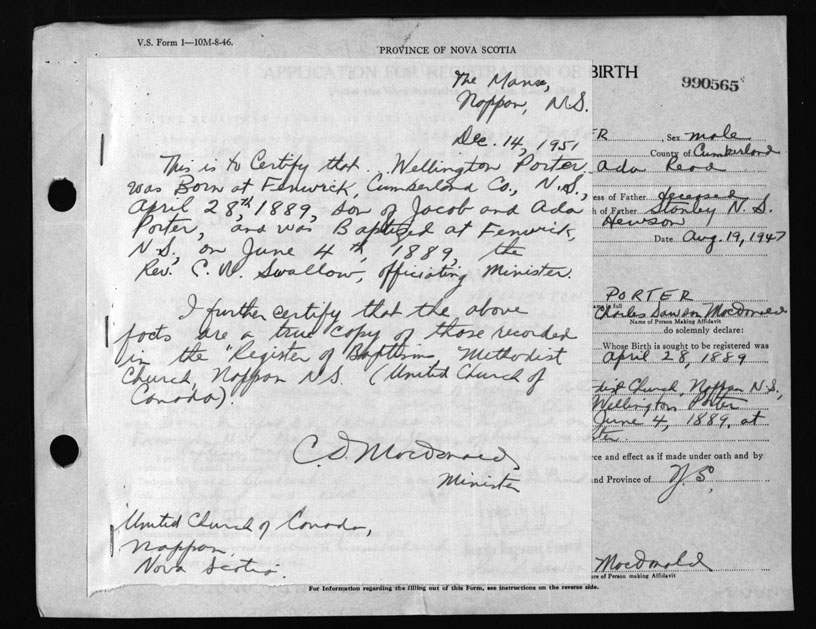 V.S. Form 1—10M-8-46.
PROVINCE OF NOVA SCOTIA
APPLICATION FOR REGISTRATION OF BIRTH
990565
The Manse,
Nappan, N.S.
Dec. 14, 1951
This is to Certify that Wellington Porter
was Born at Fenwick, Cumberland Co., N.S.,
April 28,th 1889, son of Jacob and Ada
Porter, and was Baptized at Fenwick,
N.S., on June 4th, 1889, the
Rev. C. W. Swallow, officiating Minister.
I further certify that the above
facts are a true copy of those recorded
in the "Register of Baptisms Methodist
Church, Nappan N.S. (United Church of
Canada).
C. D. Macdonald,
Minister
United Church of Canada,
Nappan,
Nova Scotia.
ER Sex male
County of Cumberland
Ada Read
ess of Father deceased
h of Father Stanley N. S.
Hewson
Date Aug. 19, 1947
PORTER
Charles Dawson Macdonald
Name of Person Making Affidavit
do solemnly declare:
Whose Birth is sought to be registered was
April 28, 1889
Church, Nappan N.S.,
Wellington Porter
June 4, 1889, at
rce and effect as if made under oath and by
and Province of N.S.
Macdonald
ure of Person making Affidavit
For Information regarding the filling out of this Form, see instructions on the reverse side.